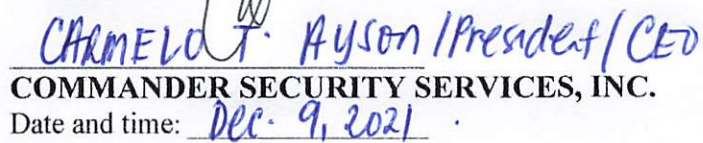 CARMELO T. Ayson / President / CEO
COMMANDER SECURITY SERVICES, INC.
Date and time: Dec. 9, 2021